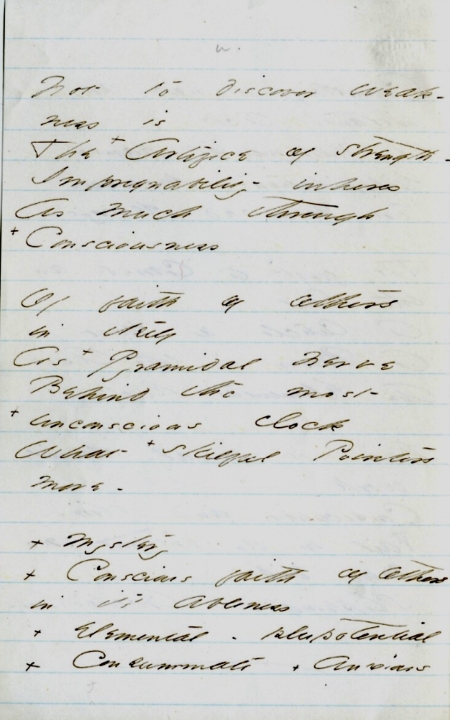 Not to discover weak-
ness is
The + Artifice of strength -
Impregnability inheres
As much through
+ Consciousness
Of faith of others
in itself
As + Pyramidal Nerve
Behind the most
+ unconscious clock
What + skilful Pointers
move -
+ Mystery
+ Conscious faith of others
in its ableness
+ Elemental -
+ Consummate + Anxious